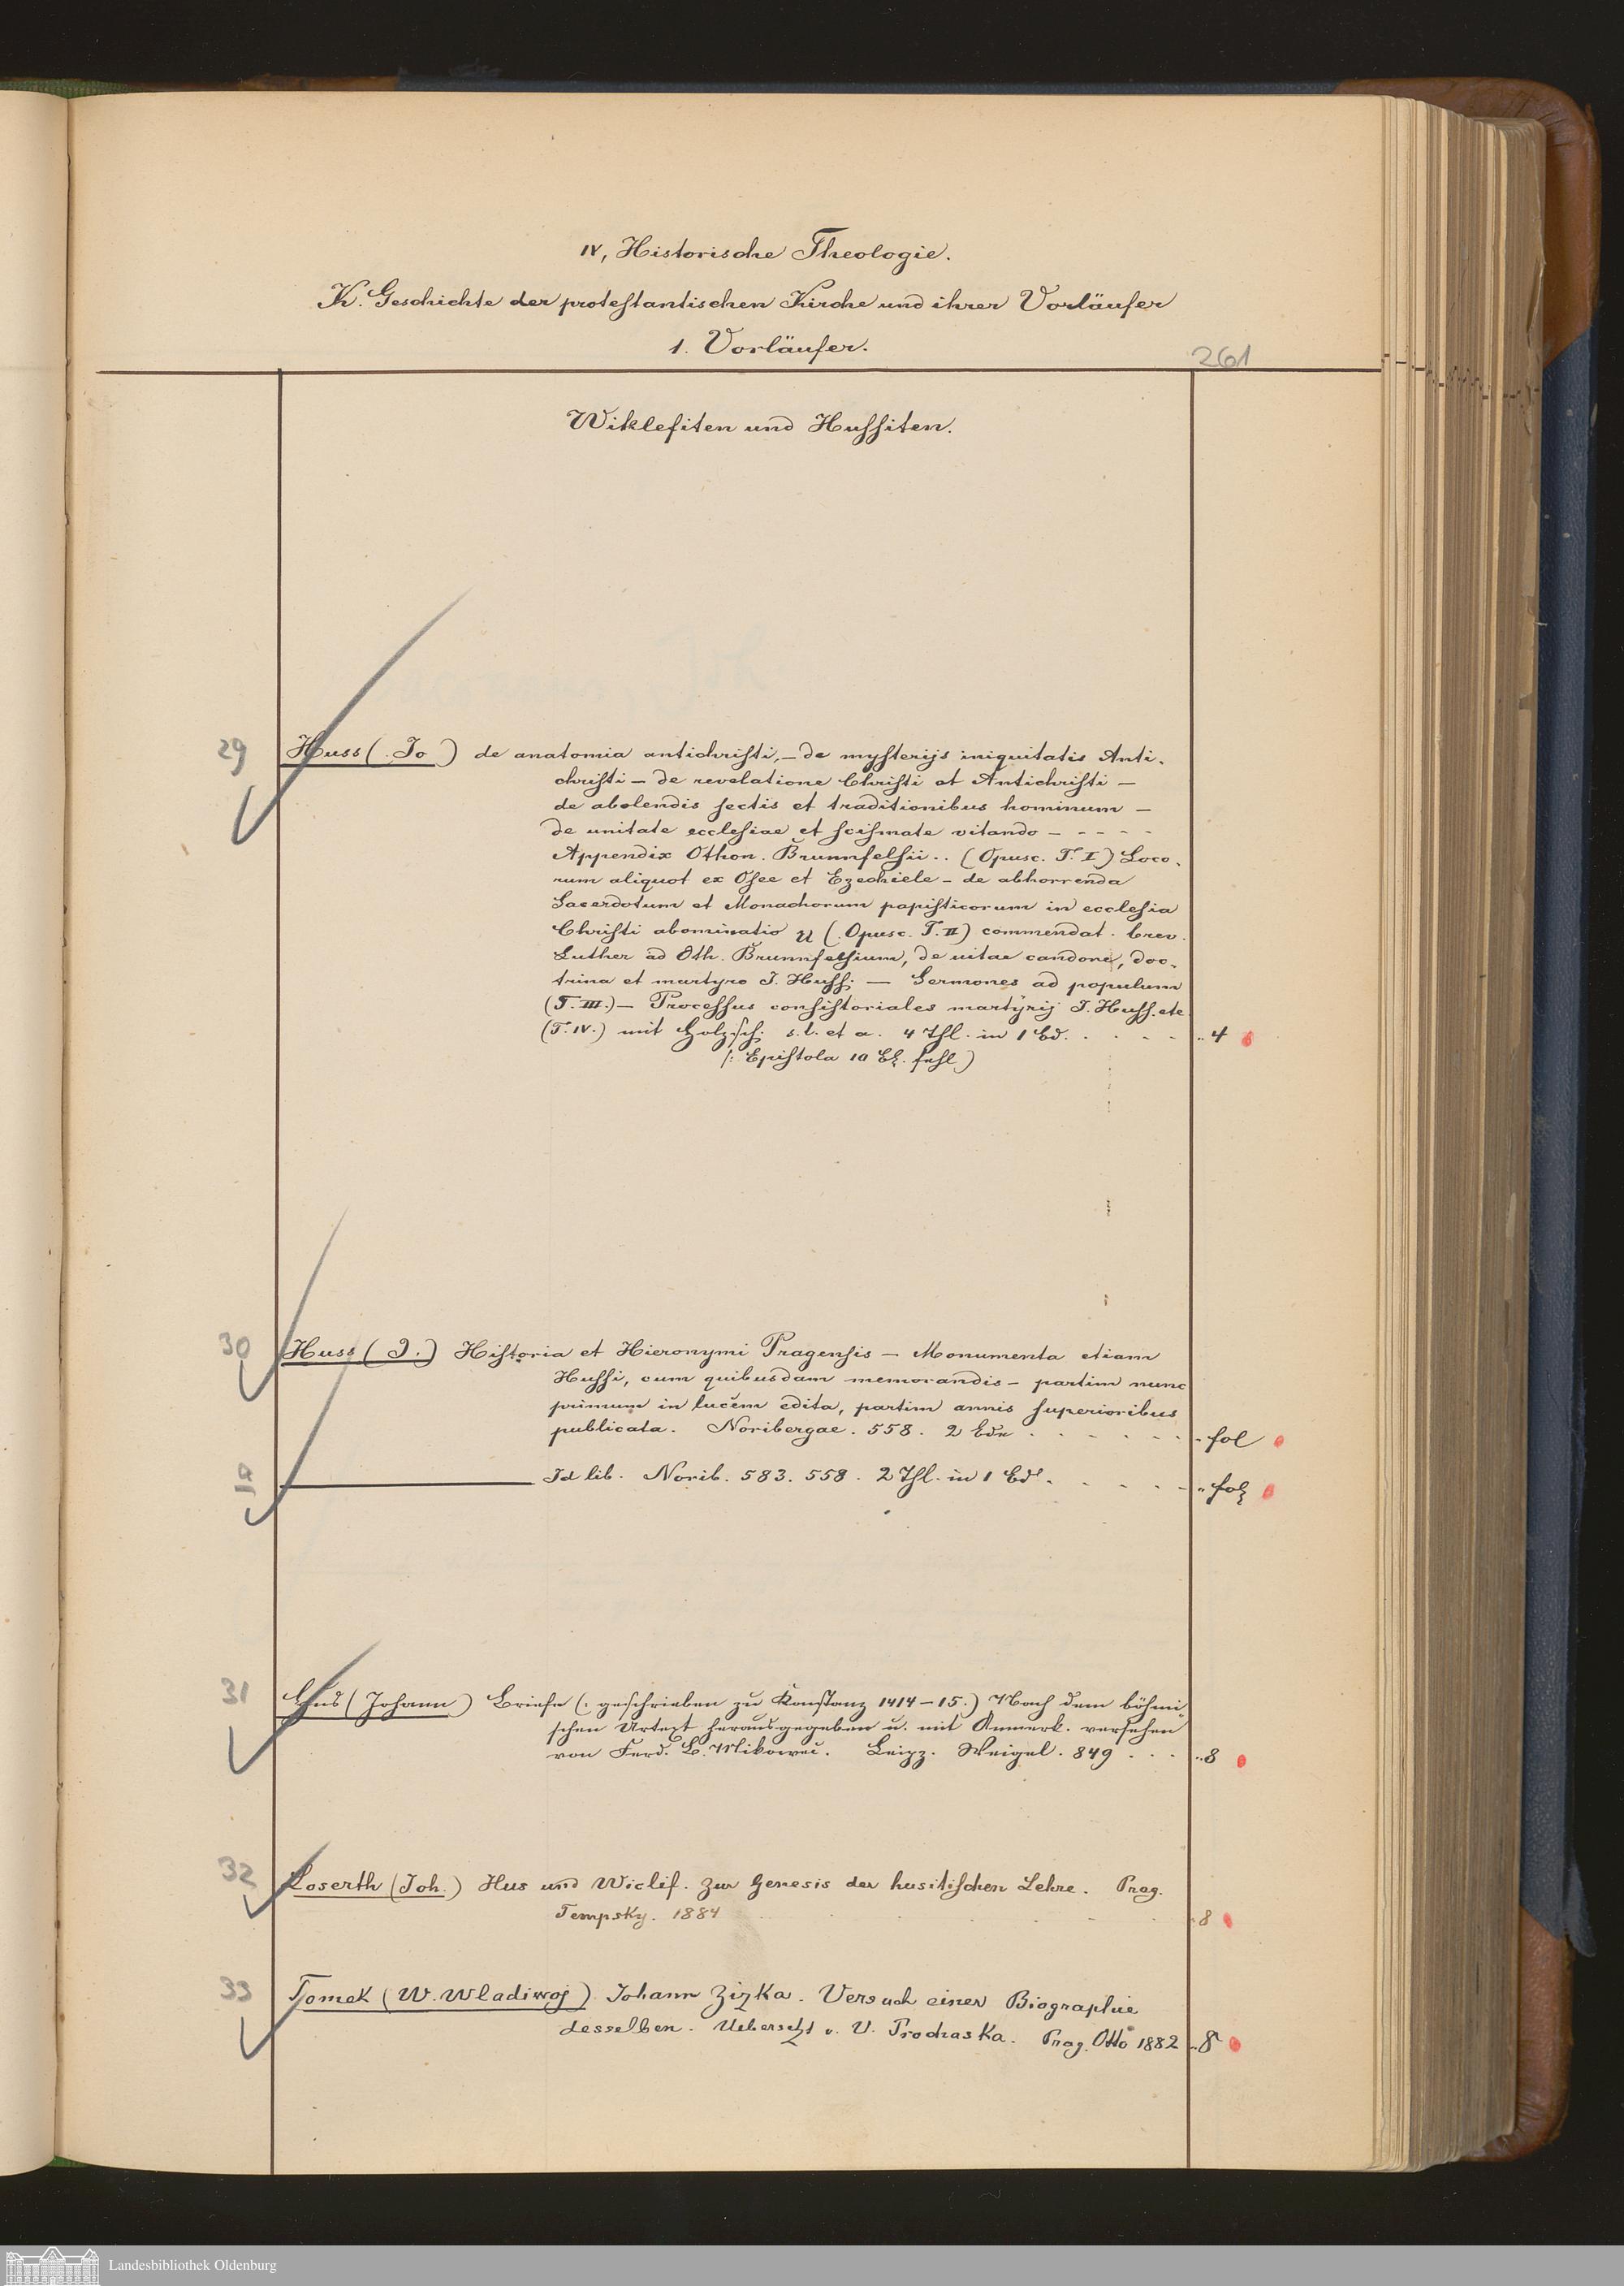 IV, Historische Theologie.
K. Geschichte der protestantischen Kirche und ihrer Vorläufer
1. Vorläufer.
261
Wiklefiten und Hussiten.
29
Huss (Jo) de anatomia antichristi, – de mysterijs iniquitatis Anti-
christi – de revelatione Christi et Antichristi –
de abolendis sectis et traditionibus hominum –
de unitate ecclesiae et scismate vitando – - - - -
Appendix Othon. Brunnfelsii .. (Opusc. T. I) Loco-
rum aliquot ex Osee et Ezechiele – de abhorrenda
Sacerdotum et Monachorum papisticorum in ecclesia
Christi abominatio (Opusc. T. II) commendat. brev.
Luther ad Oth. Brunnfelsium, de vitae candore, doc-
trina et martyro J. Huss; — Sermones ad populum
(T. III.) – Processus consistoriales martÿrij J. Huss. etc.
(T. IV.) mit Holzsch. s. l. et a. 4 Thl. in 1 Bd. . . . . . .. 4
(: Epistola 10 Bl. fehl.)
30
Huss (J.) Historia et Hieronymi Pragensis – Monumenta etiam
Hussi, cum quibusdam memorandis – partim nunc
primum in lucem edita, partim annis superioribus
publicata. Noribergae. 558. 2 Bde . . . . . . . fol
Id lib. Norib. 583. 558. 2 Thl. in 1 Bd. . . . . .. fol
31
Hus (Johann) Briefe (: geschrieben zu Konstanz 1414–15.) Nach dem böhmi-
schen Urtext herausgegeben u. mit Anmerk. versehen
von Ferd. B. Mikowec. Leipz. Weigel. 849 . . . .. 8
32
Loserth (Joh.) Hus und Wiclif. Zur Genesis der husitischen Lehre. Prag.
Tempsky. 1884 . . . . . 8
33
Tomek (W. Wladiwoj) Johann Zizka. Versuch einer Biographie
desselben. Uebersetzt v. V. Prochaska. Prag. Otto 1882 .. 8
Landesbibliothek Oldenburg